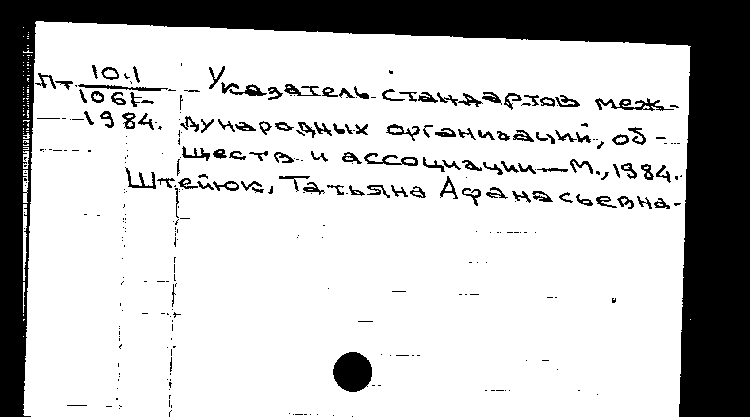 Пт 10.1 Указатель стандартов меж-
1061-
1984. дународных организаций, об-
ществ и ассоциации — М., 1984.
Штейюк, Татьяна Афанасьевна.